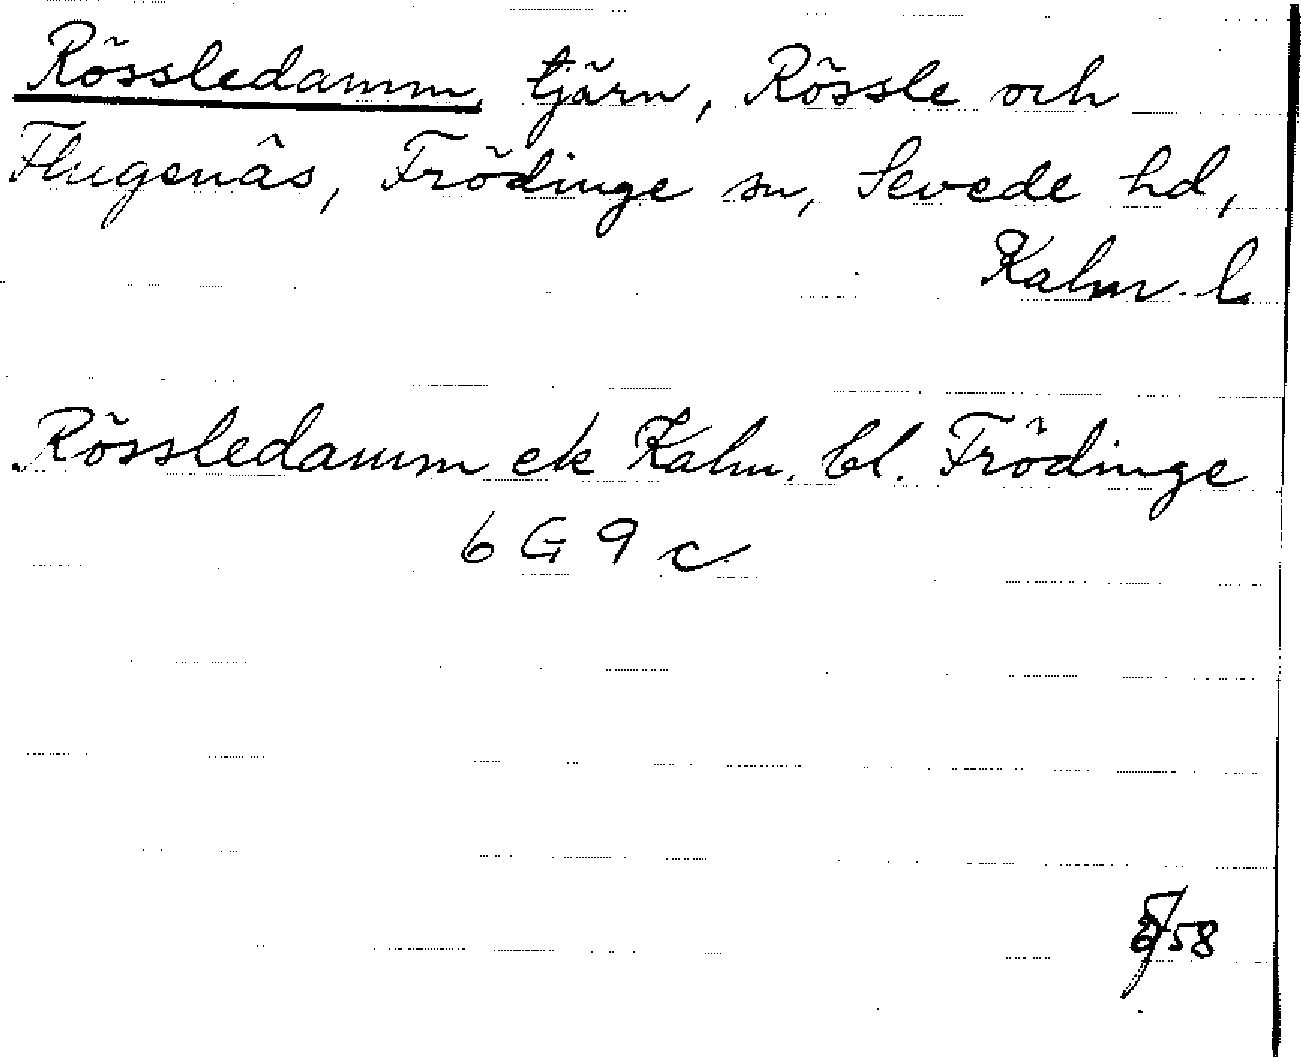 Rössledamm, tjärn, Rössle och
Flugenäs, Frödinge sn, Sevede hd,
Kalm. l.
Rössledamm ek Kalm. bl. Frödinge
6 G 9 c
58